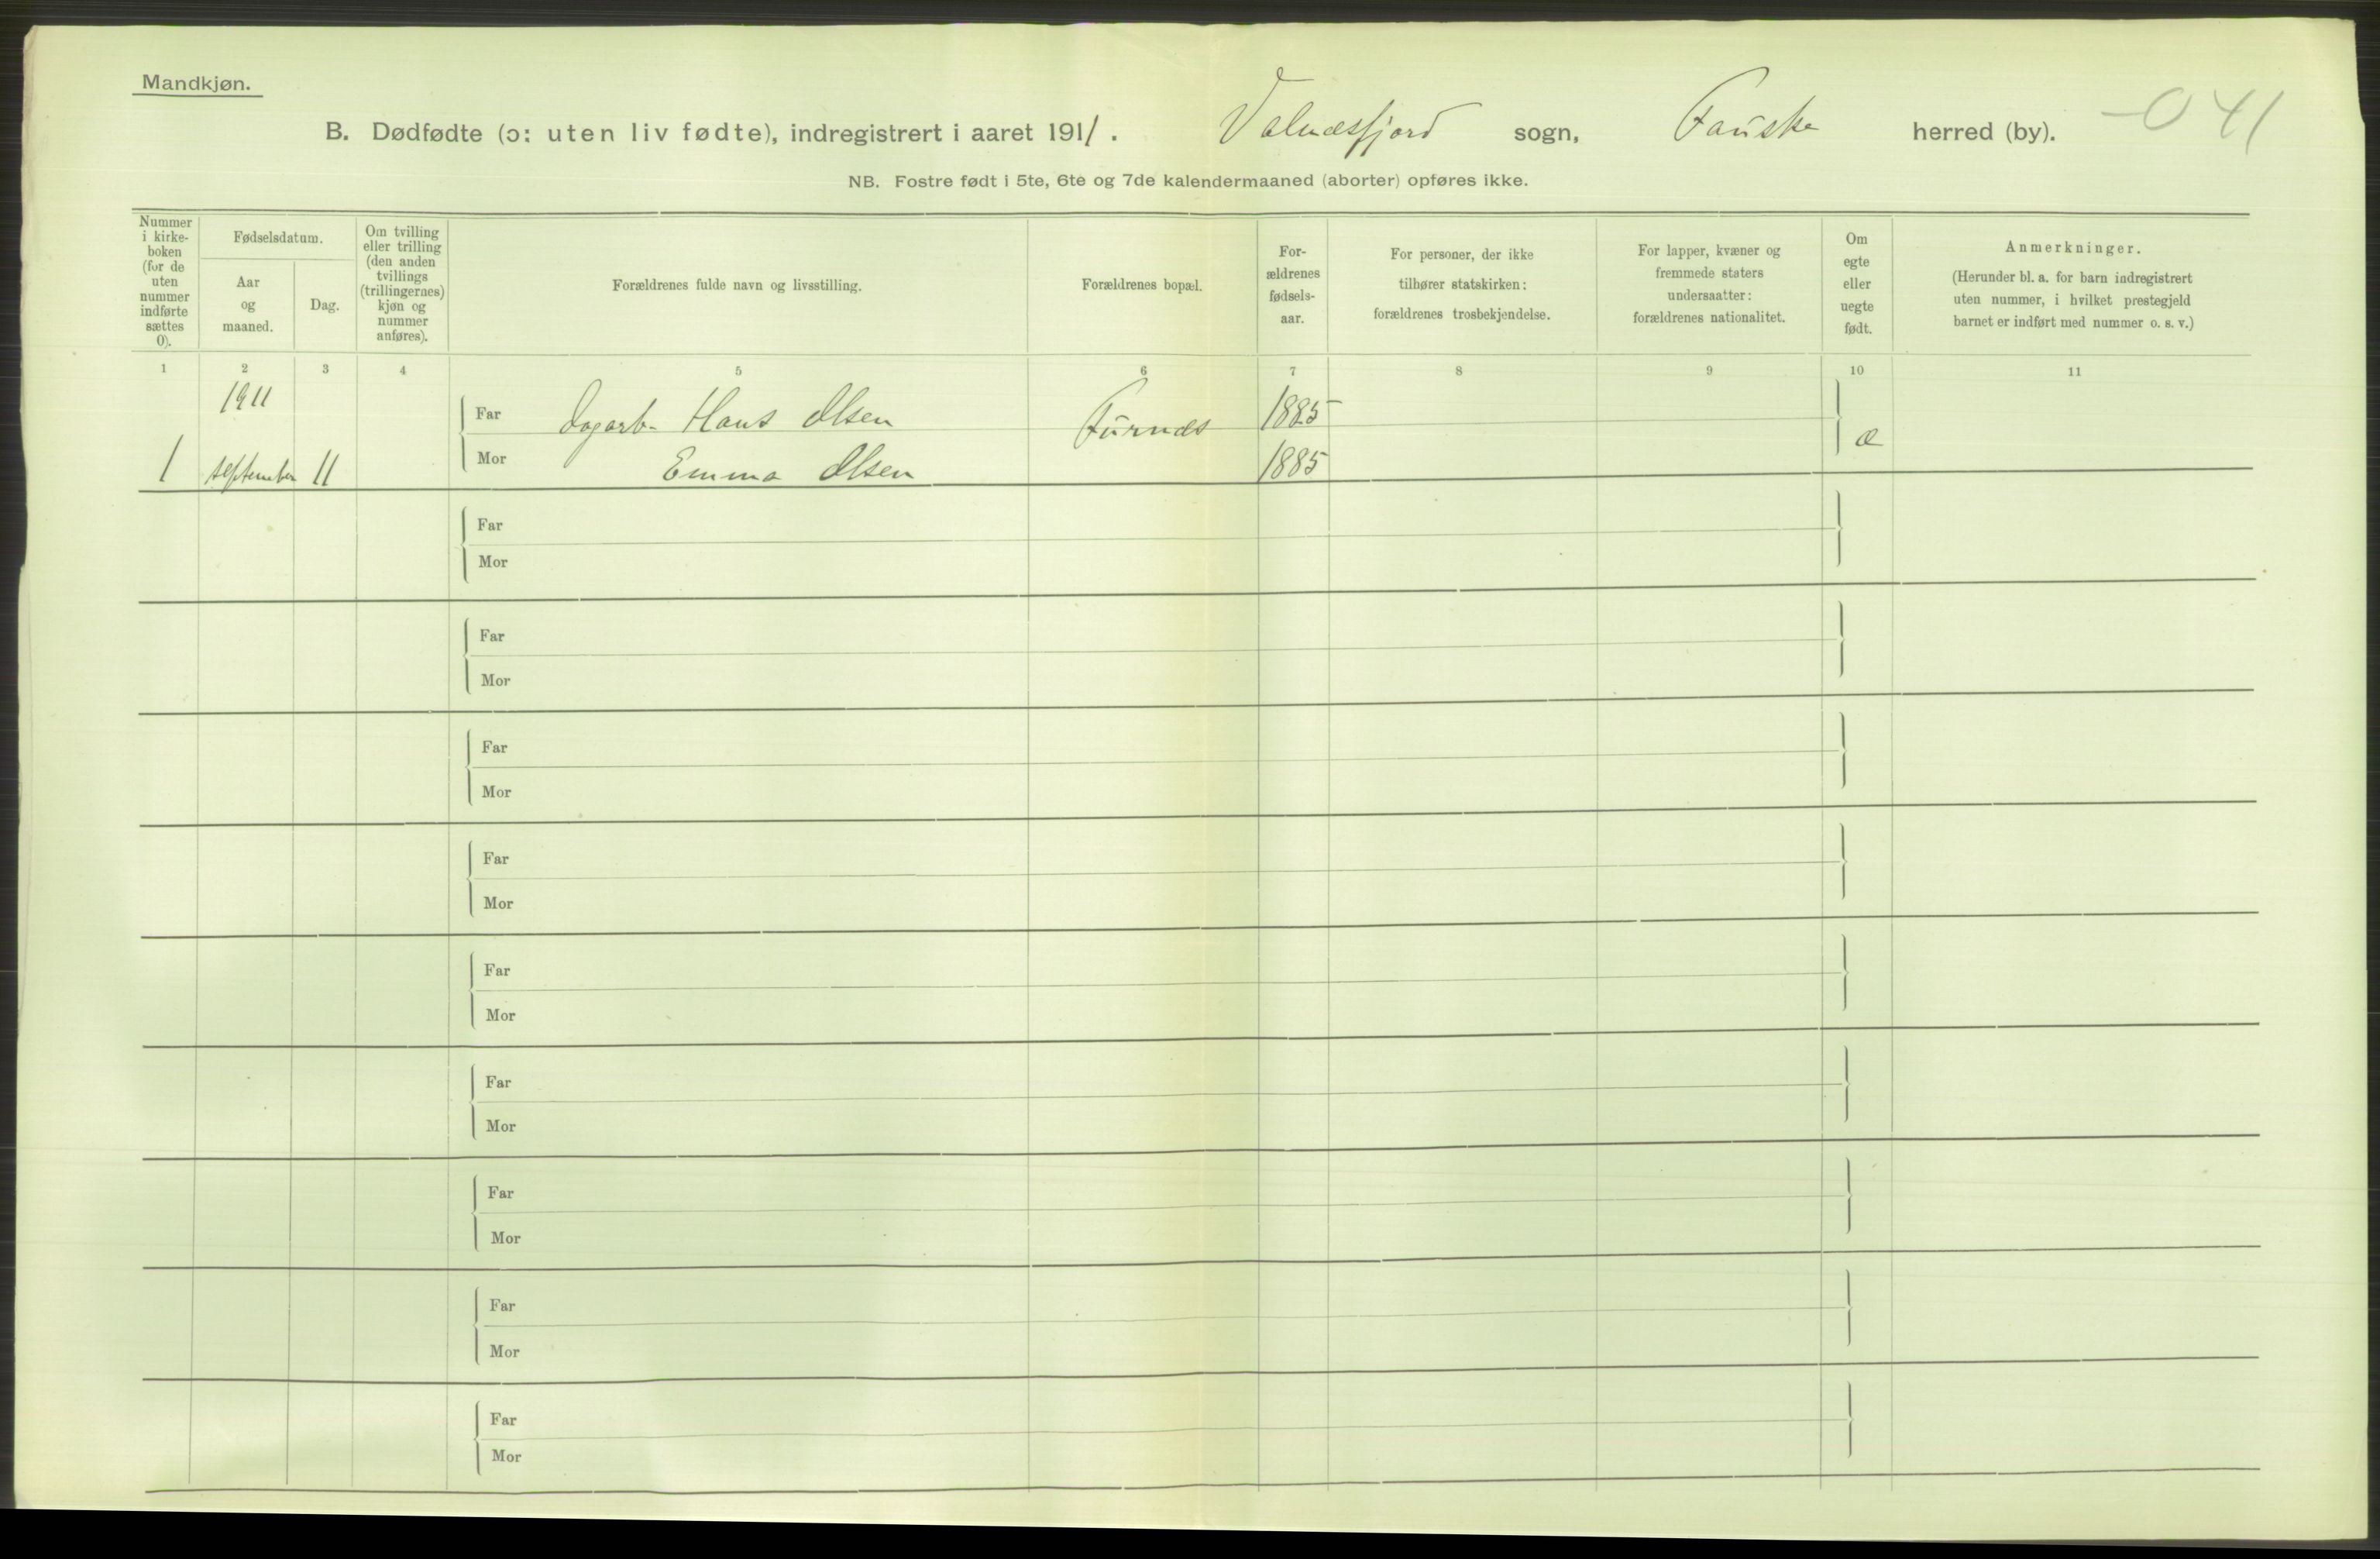 Mandkjøn.
B. Dødfødte (ɔ: uten liv fødte), indregistrert i aaret 1911. Valnæsfjord sogn, Fauske herred (by). -041
NB. Fostre født i 5te, 6te og 7de kalendermaaned (aborter) opføres ikke.
Nummer i kirke-boken (for de uten nummer indførte sættes 0).
Fødselsdatum.
Aar og maaned.
Dag.
Om tvilling eller trilling (den anden tvillings (trillingernes) kjøn og nummer anføres).
Forældrenes fulde navn og livsstilling.
Forældrenes bopæl.
For-ældrenes fødsels-aar.
For personer, der ikke tilhører statskirken: forældrenes trosbekjendelse.
For lapper, kvæner og fremmede staters undersaatter: forældrenes nationalitet.
Om egte eller uegte født.
Anmerkninger.
(Herunder bl. a. for barn indregistrert uten nummer, i hvilket prestegjeld barnet er indført med nummer o. s. v.)
1 2 3 4 5 6 7 8 9 10 11
1911
Far Dagarb. Hans Olsen Furnæs 1885
1 september 11 Mor Emma Olsen 1885 æ
Far
Mor
Far
Mor
Far
Mor
Far
Mor
Far
Mor
Far
Mor
Far
Mor
Far
Mor
Far
Mor